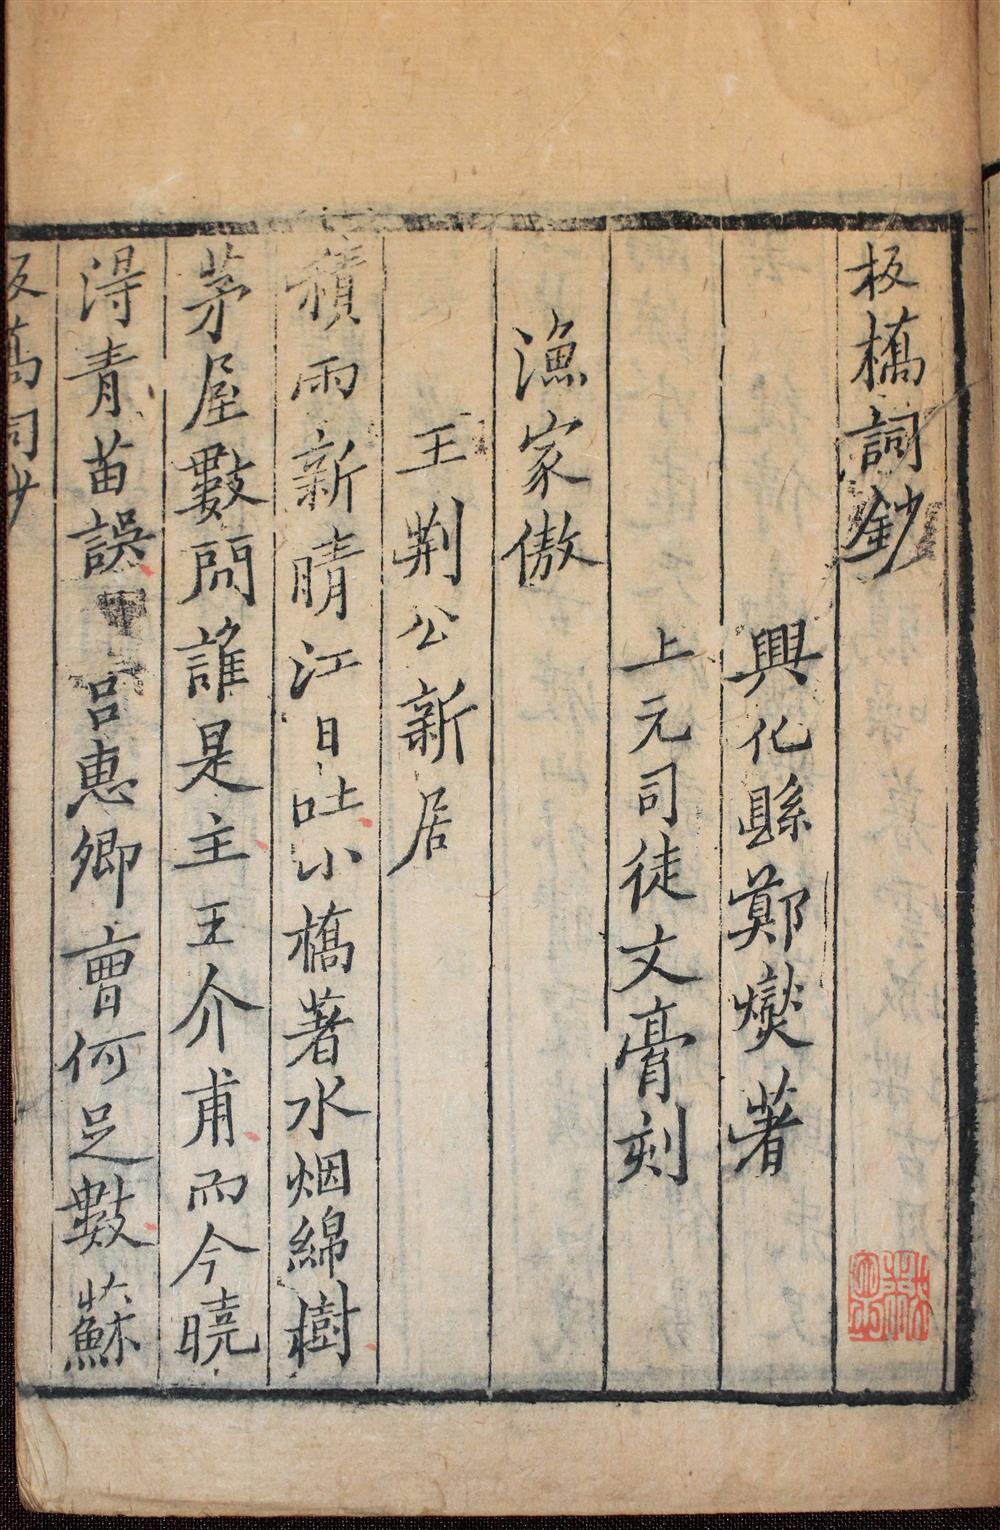 板橋詞鈔
興化縣鄭燮著
上元司徒文膏刻
漁家傲
王荆公新居
積雨新晴江日吐小橋著水烟綿樹
茅屋數間誰是主王介甫而今曉
淂青苗誤 呂惠卿曹何足數蘇
板橋詞鈔